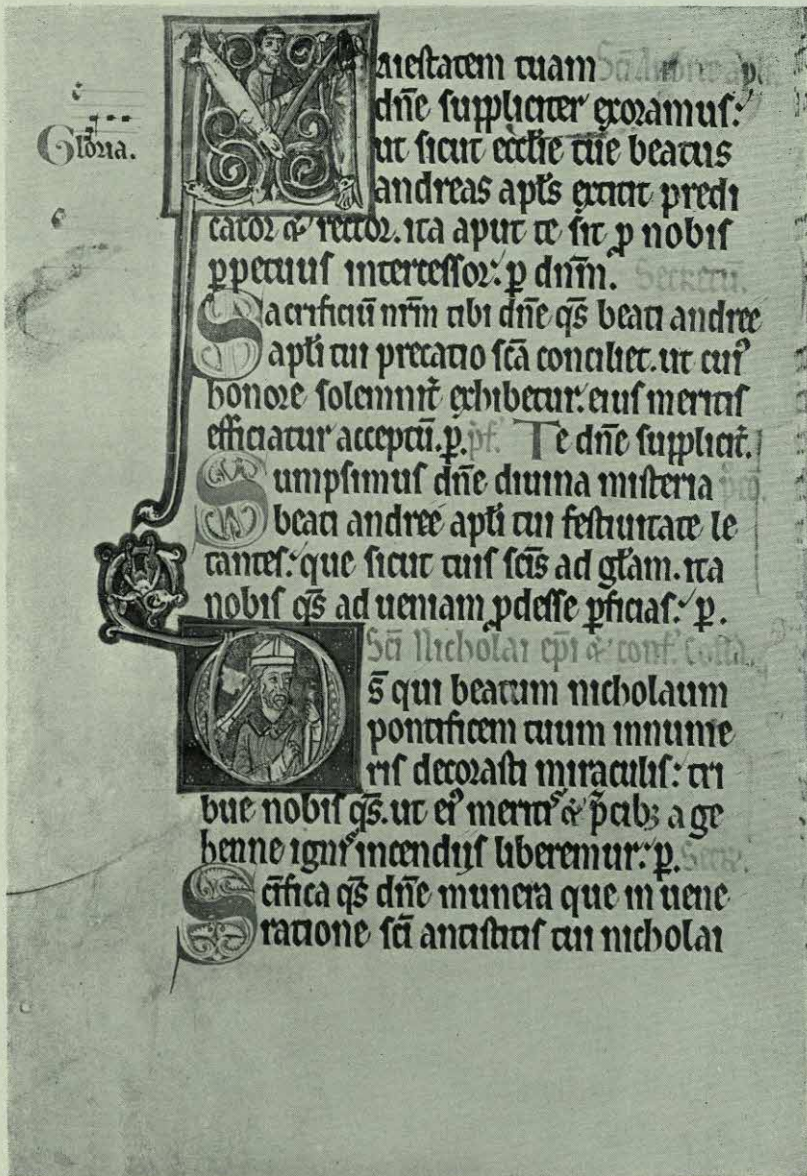 Maiestatem tuam Sci Andree apli.
dñe suppliciter exoramus:
Gloria.
ut sicut eccl̄ie tue beatus
andreas apl̄s extitit predi
cator & rector. ita aput te sit ꝓ nobis
ꝑpetuus intercessor: ꝑ dñm. Secretū.
Sacrificiū nr̄m tibi dñe qs̄ beati andree
apl̄i tui precatio sc̄a conciliet. ut cuiꝰ
honore solemnit̄ exhibetur. eius meritis
efficiatur acceptū. ꝑ. p̄f. Te dñe supplicit̄.
Sumpsimus dñe diuina misteria
beati andree apl̄i tui festiuitate le
tantes: que sicut tuis sc̄is ad gl̄am. ita
nobis qs̄ ad ueniam ꝓdesse ꝑficias: ꝑ.
Sc̄i Nicholai ep̄i & conf.
Ds̄ qui beatum nicholaum
pontificem tuum innume
ris decorasti miraculis: tri
bue nobis qs̄. ut eiꝰ meritꝭ & p̄cibꝫ a ge
henne ignis incendijs liberemur: ꝑ. Secre.
Sc̄ifica qs̄ dñe munera que in uene
ratione sc̄i antistitis tui nicholai